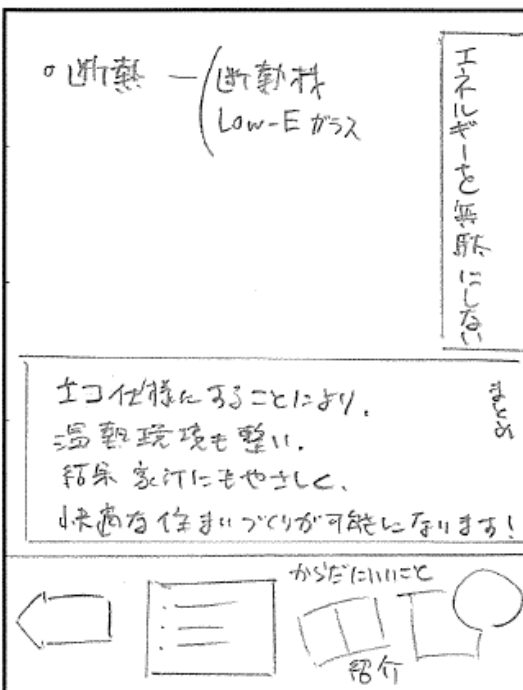 エネルギーを無駄にしない
。断熱 ― 断熱材
Low-E ガラス
まとめ
エコ仕様にすることにより、
温熱環境も整い、
結果 家計にもやさしく、
快適な住まいづくりが可能になります!
からだにいいこと
紹介